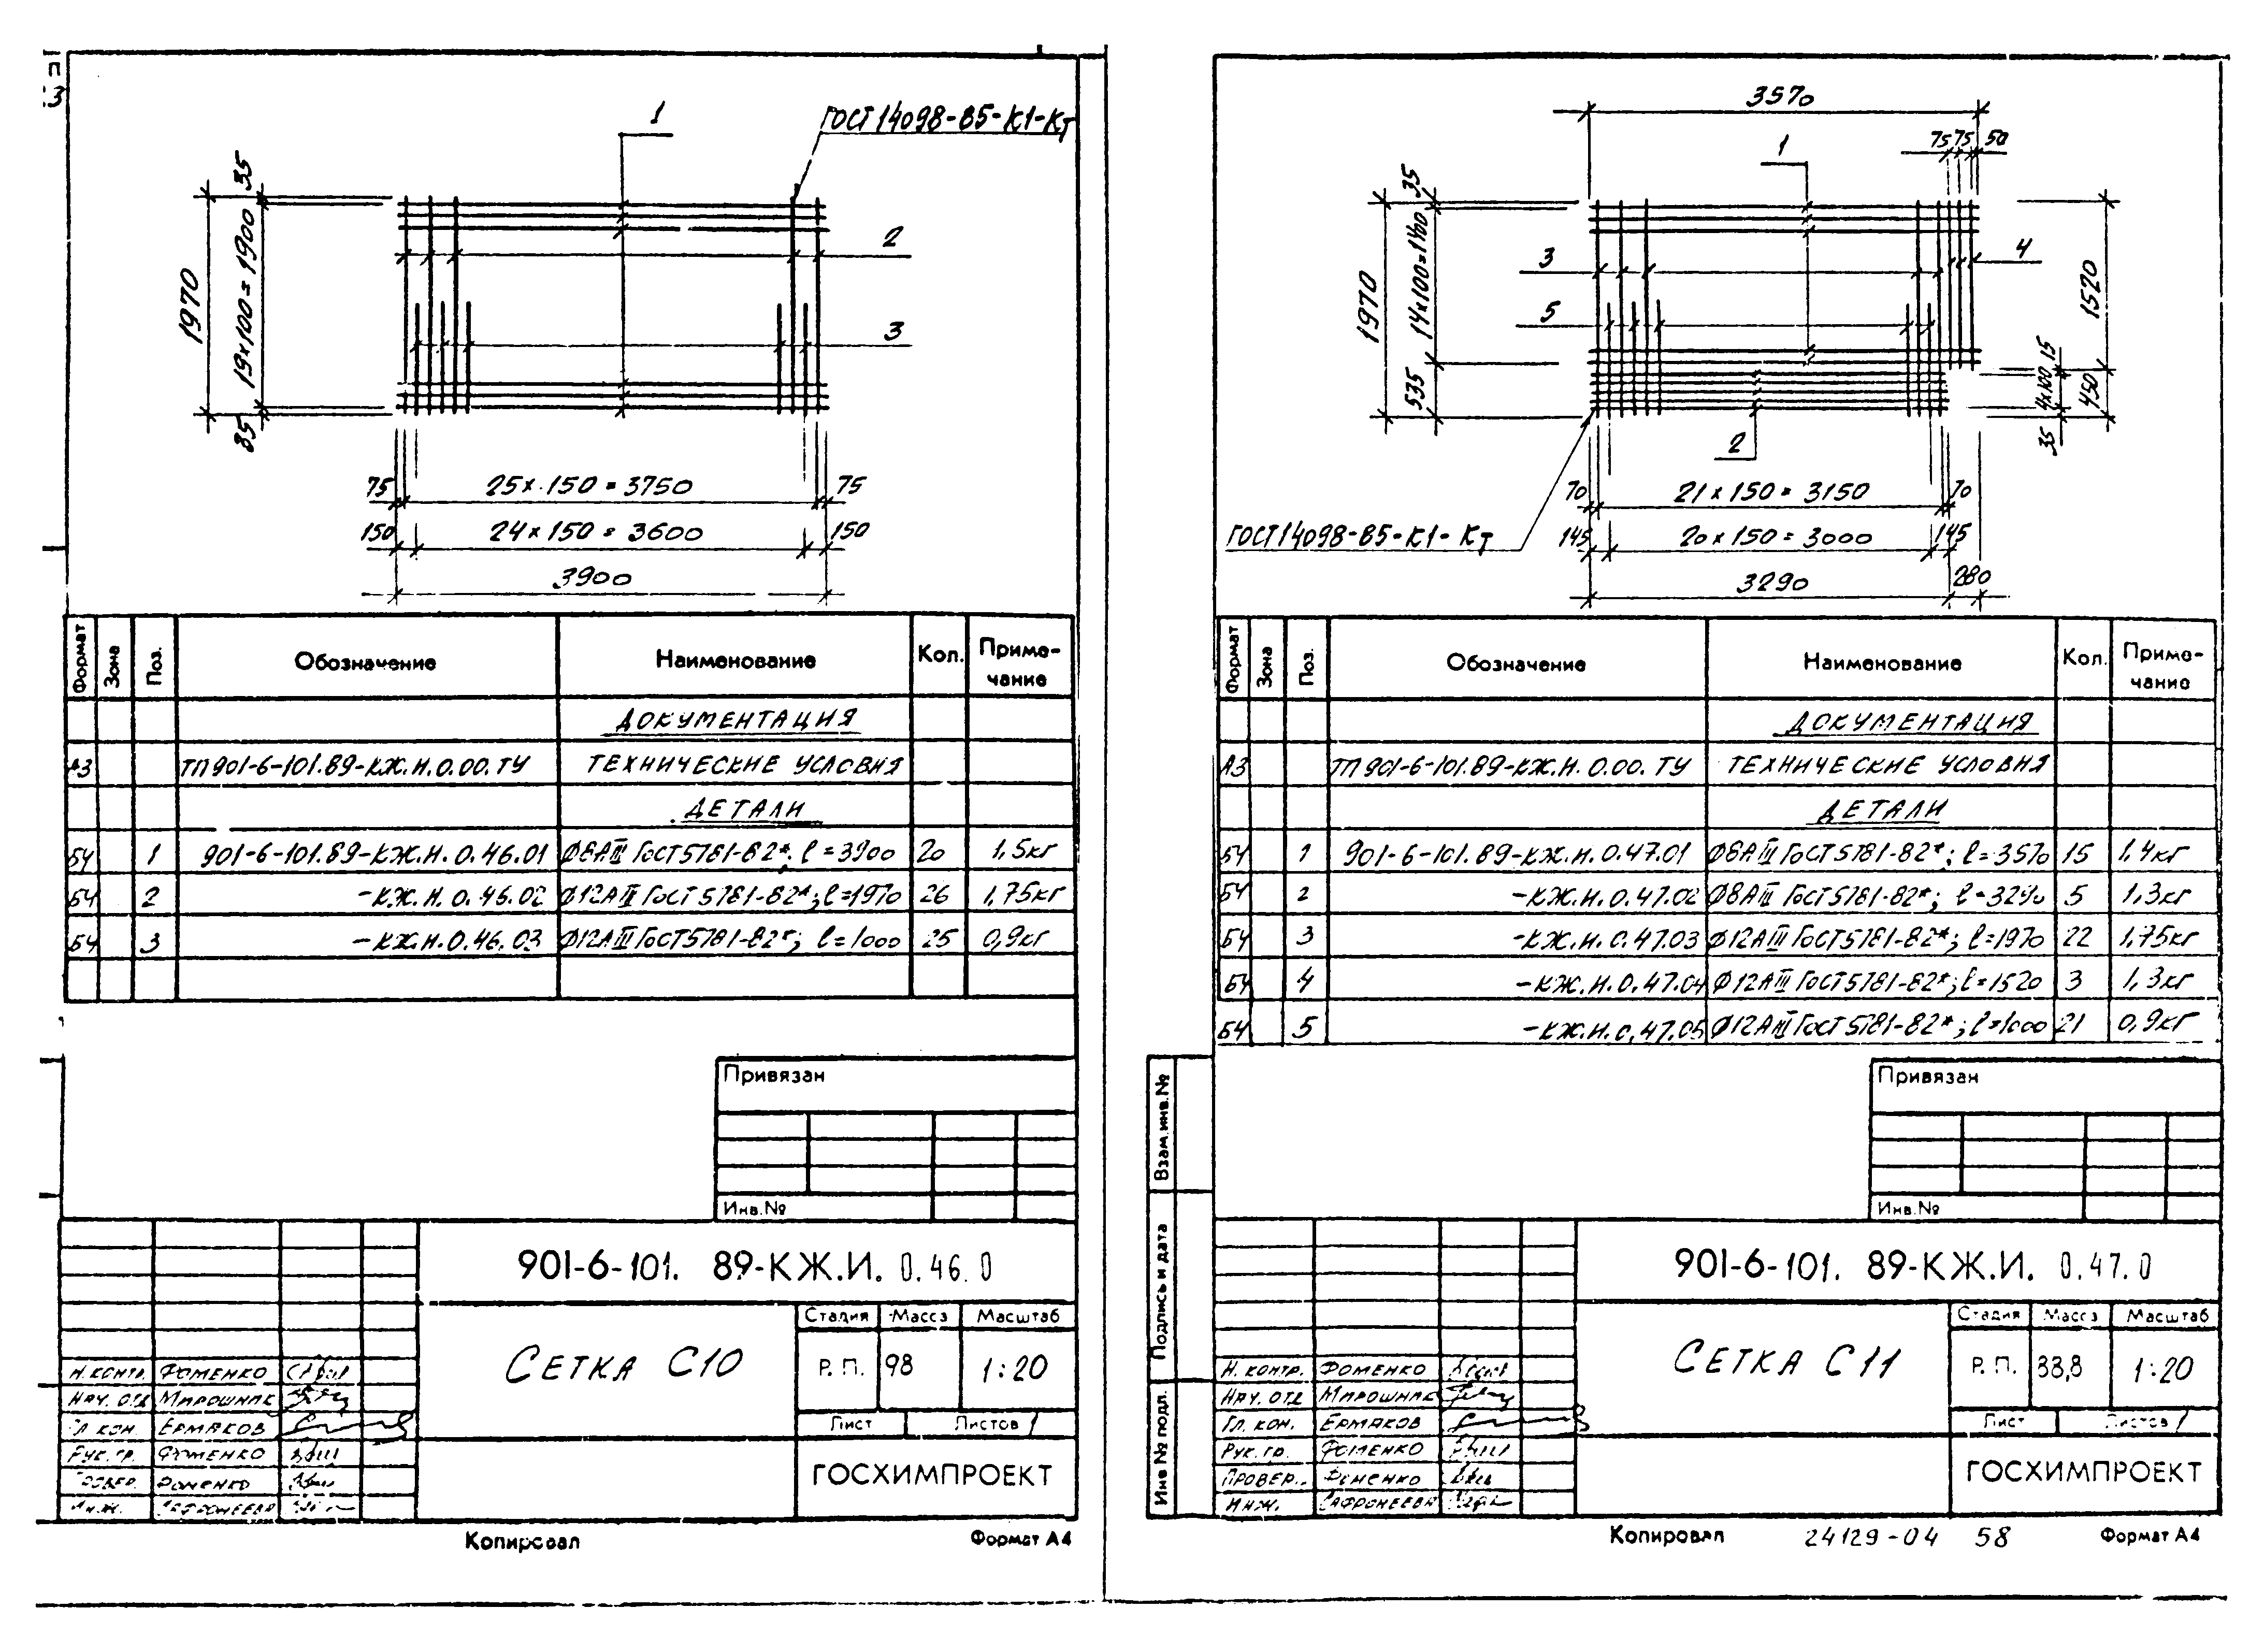 П
3
1
ГОСТ 14098-85-К1-Кт
35
19×100=1900
1970
35
2
3
75
25×150=3750
75
150
24×150=3600
150
3900
Формат
Зона
Поз.
Обозначение
Наименование
Кол.
Приме-
чание
ДОКУМЕНТАЦИЯ
А3 ТП 901-6-101.89-КЖ.И.0.00.ТУ ТЕХНИЧЕСКИЕ УСЛОВИЯ
ДЕТАЛИ
БЧ 1 901-6-101.89-КЖ.И.0.46.01 Ф8АIII ГОСТ 5781-82*; ℓ=3900 20 1,5кг
БЧ 2 -КЖ.И.0.46.02 Ф12АIII ГОСТ 5781-82*; ℓ=1970 26 1,75кг
БЧ 3 -КЖ.И.0.46.03 Ф12АIII ГОСТ 5781-82*; ℓ=1000 25 0,9кг
Привязан
Инв.№
901-6-101. 89-КЖ.И. 0.46.0
СЕТКА С10
Стадия Масса Масштаб
Р.П. 98 1:20
Лист Листов 1
ГОСХИМПРОЕКТ
Н.КОНТР. ФОМЕНКО
НАЧ. ОТД МИРОШНИК
ГЛ. КОН. ЕРМАКОВ
РУК. ГР. ФОМЕНКО
ПРОВЕР. ФОМЕНКО
ИНЖ. САФРОНЕЕВА
Копировал Формат А4
3570
75 75 50
1
35
14×100=1400
1970
535
3
5
4
1520
15
4×100
450
35
2
70
21×150=3150
70
ГОСТ 14098-85-К1-Кт
145
20×150=3000
145
3290
280
Формат
Зона
Поз.
Обозначение
Наименование
Кол.
Приме-
чание
ДОКУМЕНТАЦИЯ
А3 ТП 901-6-101.89-КЖ.И.0.00.ТУ ТЕХНИЧЕСКИЕ УСЛОВИЯ
ДЕТАЛИ
БЧ 1 901-6-101.89-КЖ.И.0.47.01 Ф8АIII ГОСТ 5781-82*; ℓ=3570 15 1,4кг
БЧ 2 -КЖ.И.0.47.02 Ф8АIII ГОСТ 5781-82*; ℓ=3290 5 1,3кг
БЧ 3 -КЖ.И.0.47.03 Ф12АIII ГОСТ 5781-82*; ℓ=1970 22 1,75кг
БЧ 4 -КЖ.И.0.47.04 Ф12АIII ГОСТ 5781-82*; ℓ=1520 3 1,3кг
БЧ 5 -КЖ.И.0.47.05 Ф12АIII ГОСТ 5781-82*; ℓ=1000 21 0,9кг
Привязан
Инв.№
Взам.инв.№
Подпись и дата
Инв № подл.
901-6-101. 89-КЖ.И. 0.47.0
СЕТКА С11
Стадия Масса Масштаб
Р.П. 83,8 1:20
Лист Листов 1
ГОСХИМПРОЕКТ
Н. КОНТР. ФОМЕНКО
НАЧ. ОТД МИРОШНИК
ГЛ. КОН. ЕРМАКОВ
РУК. ГР. ФОМЕНКО
ПРОВЕР. ФОМЕНКО
ИНЖ. САФРОНЕЕВА
Копировал 24129-04 58 Формат А4